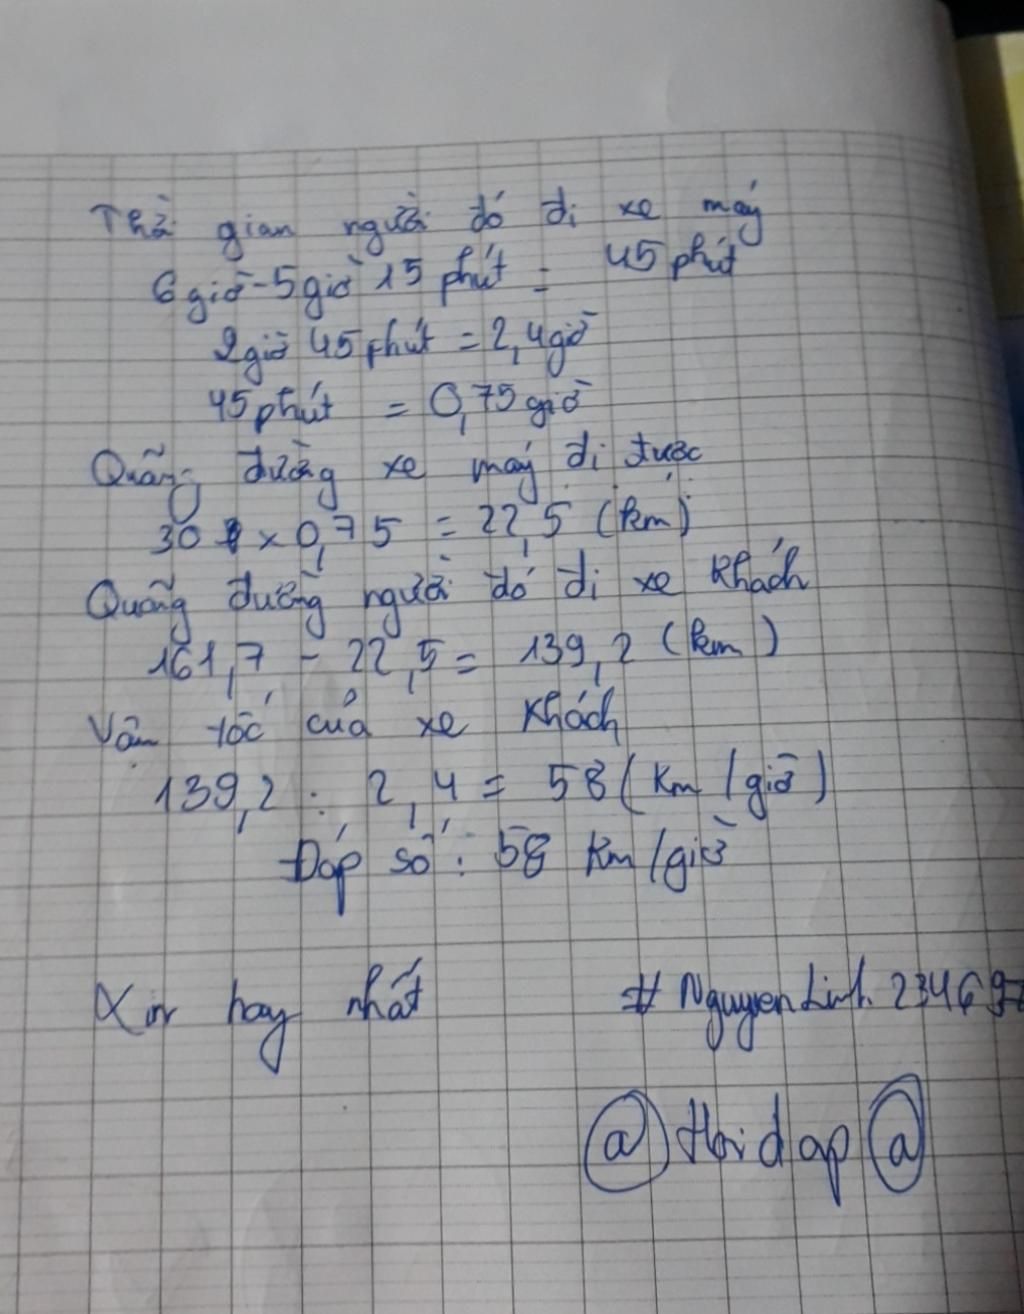 Thời gian người đó đi xe máy
6 giờ - 5 giờ 15 phút = 45 phút
2 giờ 45 phút = 2,4 giờ
45 phút = 0,75 giờ
Quãng đường xe máy đi được
30 x 0,75 = 22,5 (km)
Quãng đường người đó đi xe khách
161,7 - 22,5 = 139,2 (km)
Vận tốc của xe khách
139,2 : 2,4 = 58 (km/giờ)
Đáp số : 58 km/giờ
Xin hay nhất # NguyenLinh.234697
@ Hoidap @